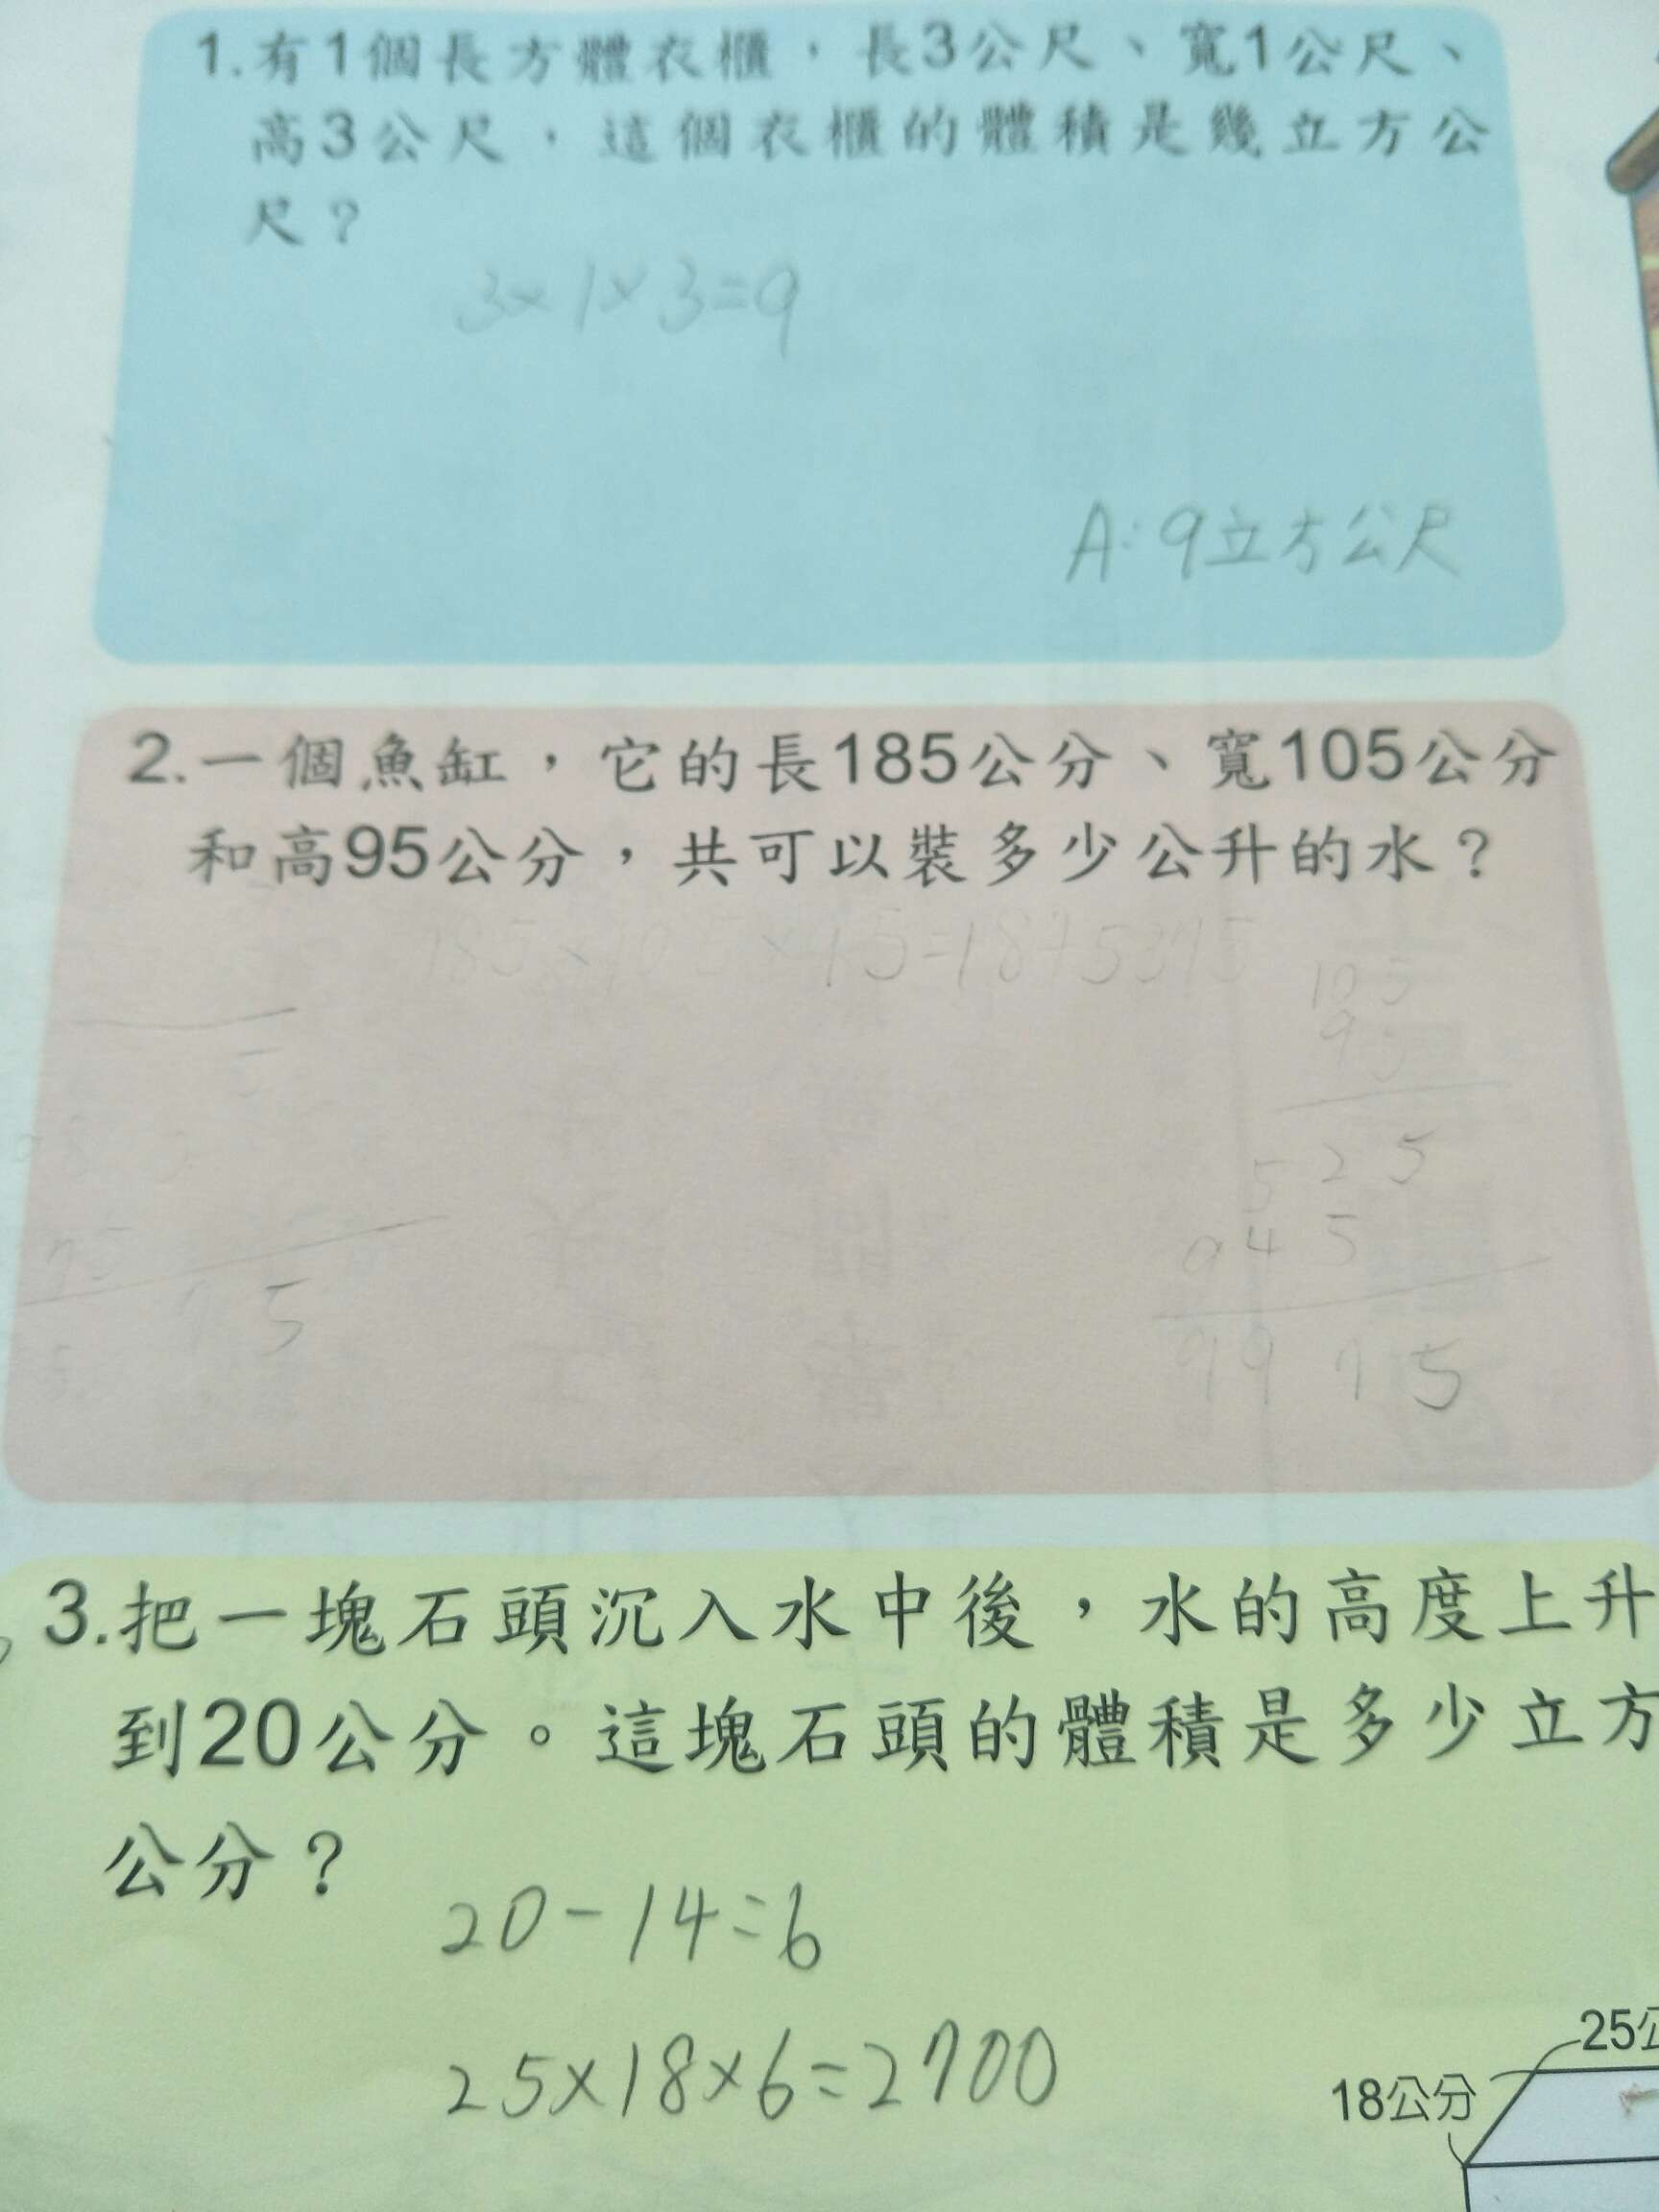 1.有1個長方體衣櫃，長3公尺、寬1公尺、
高3公尺，這個衣櫃的體積是幾立方公
尺？
3×1×3=9
A:9立方公尺
2.一個魚缸，它的長185公分、寬105公分
和高95公分，共可以裝多少公升的水？
105
95
525
945
9975
3.把一塊石頭沉入水中後，水的高度上升
到20公分。這塊石頭的體積是多少立方
公分？
20-14=6
25×18×6=2700
25公
18公分